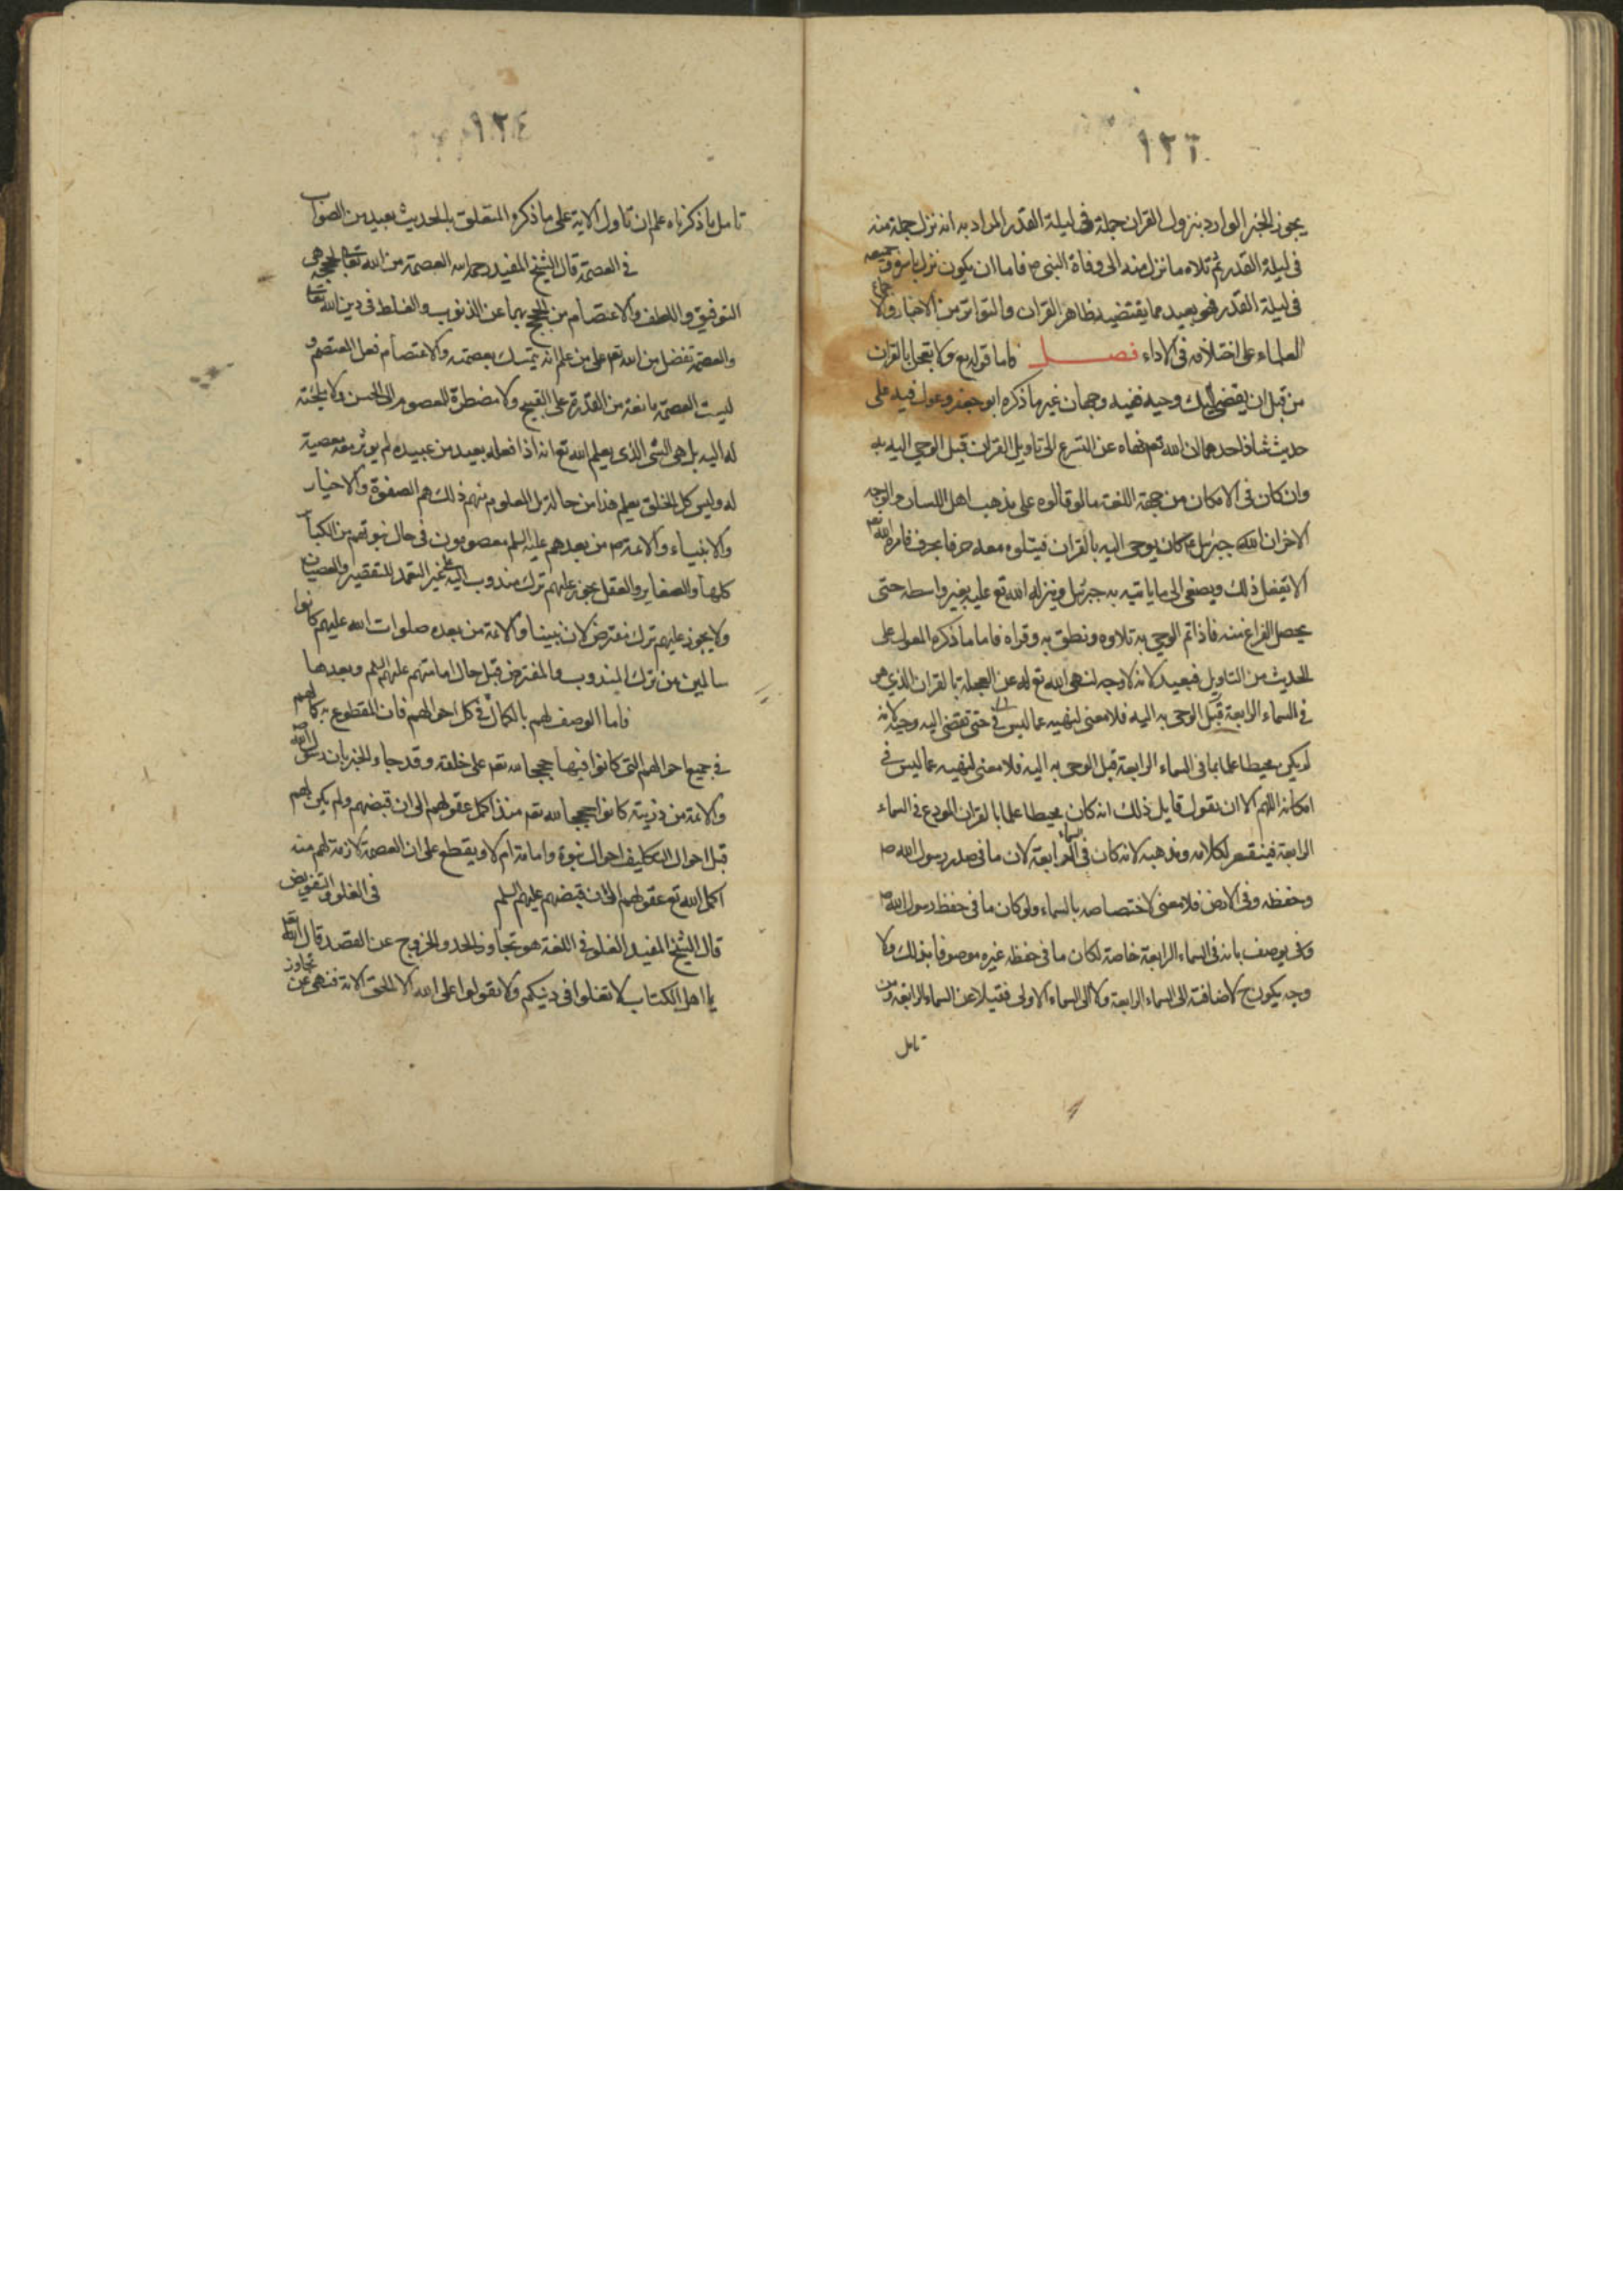 ١٢٦
يجوز الخبر الوارد بنزول القران جملة فى ليلة القدر المراد به انه نزل جملة منه
فى ليلة القدر ثم تلاه ما نزل منه الى وفاة النبى ص فاما ان يكون نزل باسره وجميعه
فى ليلة القدر فهو بعيد مما يقتضيه ظاهر القران والتواتر من الاخبار واجماع
العلماء على اختلافه فى الاداء فصل فاما قوله تع ولا تعجل بالقران
من قبل ان يقضى اليك وحيه ففيه وجهان غير ما ذكره ابو جعفر وعول فيه على
حديث شاذ احدهما ان الله تعم نهاه عن التسرع الى تاويل القران قبل الوحى اليه به
وان كان فى الامكان من جهة اللغة ما لو قالوه على مذهب اهل اللسان والوجه
الاخر ان جبرئيل ع كان يوحى اليه بالقران فيتلوه معه حرفا بحرف فامره الله تعم
الا يفعل ذلك ويصغى الى ما ياتيه به جبرئيل او ينزله الله تع عليه بغير واسطه حتى
يحصل الفراغ منه فاذا تم الوحى به تلاوه ونطق به وقراه فاما ما ذكره المعول على
الحديث من التاويل فبعيد لانه لا وجه لنهى الله تع له عن العجلة بالقران الذى هو
فى السماء الرابعة قبل الوحى به اليه فلا معنى لنهيه عما ليس فى حتى تقضى اليه وحيه لانه
لم يكن محيطا علما بما فى السماء الرابعة قبل الوحى به اليه فلا معنى لنهيه عما ليس فى
امكانه اللهم الا ان يقول قايل ذلك انه كان محيطا علما بالقران المودع فى السماء
الرابعة فينتقض كلامه ومذهبه لانه كان فى السماء الرابعة لان ما فى صدر رسول الله ص
وحفظه وفى الارض فلا معنى لاختصاصه بالسماء ولو كان ما فى حفظ رسول الله ص
يوصف بانه فى السماء الرابعة خاصة لكان ما فى حفظه غيره موصوفا بذلك ولا
وجه يكون ح لاضافته الى السماء الرابعة ولا الى السماء الاولى فضلا عن السماء الرابعة ومن
تامل
١٢٤
تامل ما ذكرناه علم ان تاول الاية على ما ذكره المتعلق بالحديث بعيد من الصواب
فى العصمة قال الشيخ المفيد رحمه الله العصمة من الله تعالى لحججه هى
التوفيق واللطف والاعتصام من الحجج بهما عن الذنوب والغلط فى دين الله تعالى
والعصمة تفضل من الله تعم على من علم انه يتمسك بعصمته والاعتصام فعل المعتصم و
ليست العصمة مانعة من القدرة على القبيح ولا مضطرة للمعصوم الى الحسن ولا ملجئة
له اليه بل هى الشى الذى يعلم الله تع انه اذا فعله بعبد من عبيده لم يوثر معه معصية
له وليس كل الخلق يعلم هذا من حاله بل المعلوم منهم ذلك هم الصفوة والاخيار
والانبياء والائمة ص من بعدهم عليه السلم معصومون فى حال نبوتهم من الكباير
كلها والصغاير والعقل يجوز عليهم ترك مندوب اليه على غير التعمد للتقصير والعصيان
ولا يجوز عليهم ترك مفترض لان نبينا والائمة من بعده صلوات الله عليهم كانوا
سالمين من ترك المندوب والمفترض قبل حال امامتهم عليهم السلم وبعدها
فاما الوصف لهم بالكمال فى كل احوالهم فان المقطوع به كمالهم
فى جميع احوالهم التى كانوا فيها حججا لله تعم على خلقه وقد جاء الخبر بان رسول الله ص
والائمة من ذريته كانوا حججا لله تعم منذ اكمل عقولهم الى ان قبضهم ولم يكن لهم
قبل احوال التكليف احوال نبوة وامامة ام لا ويقطع على ان العصمة لازمة لهم منه
اكمل الله تع عقولهم الى ان قبضهم عليهم السلم فى الغلو والتفويض
قال الشيخ المفيد الغلو فى اللغة هو تجاوز الحد والخروج عن القصد قال الله تعم
يا اهل الكتاب لا تغلوا فى دينكم ولا تقولوا على الله الا الحق الاية فنهى عن تجاوز